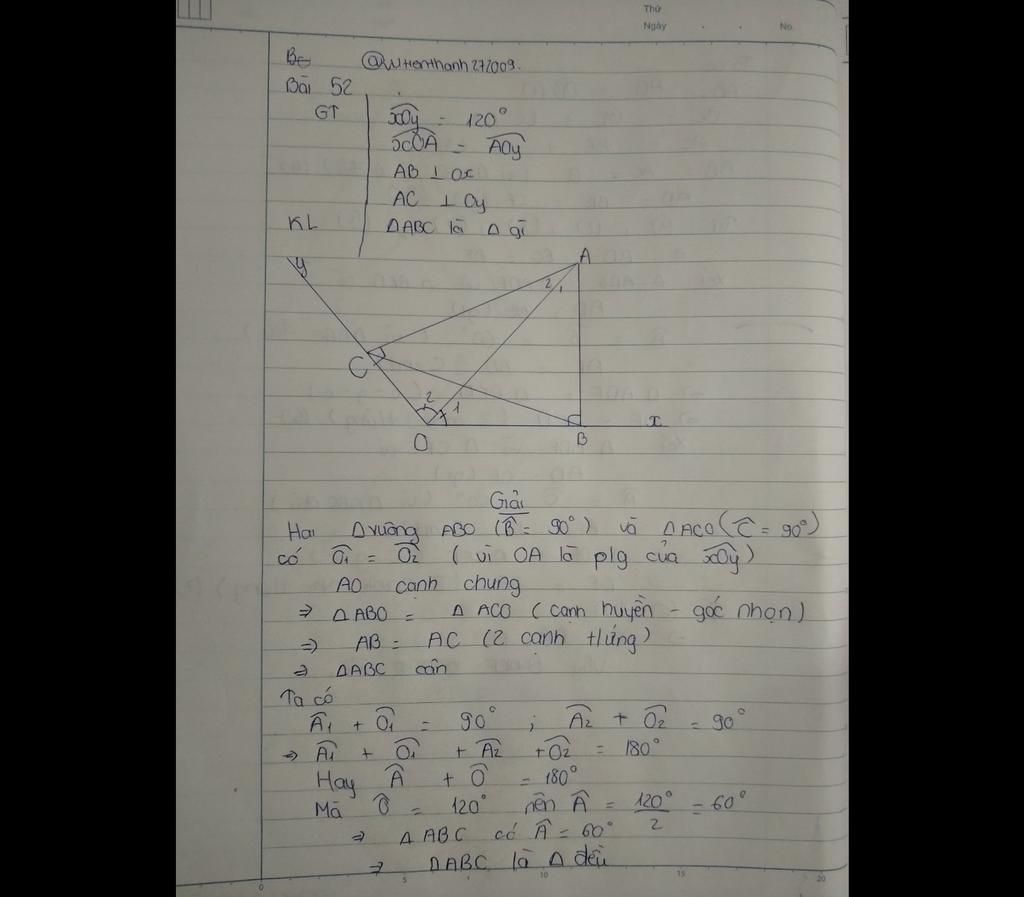 Thứ
Ngày . . No.
Be @
Bài 52
GT xOy = 120°
xOA = AOy
AB ⊥ Ox
AC ⊥ Oy
KL ΔABC là Δ gì
y
A
2 1
C
2 1
O
B
x
Giải
Hai Δvuông ABO (B̂ = 90°) và ΔACO (Ĉ = 90°)
có Ô1 = Ô2 (vì OA là plg của xOy)
AO cạnh chung
⇒ ΔABO = ΔACO (cạnh huyền - góc nhọn)
⇒ AB = AC (2 cạnh tứng)
⇒ ΔABC cân
Ta có
Â1 + Ô1 = 90° ; Â2 + Ô2 = 90°
⇒ Â1 + Ô1 + Â2 + Ô2 = 180°
Hay Â + Ô = 180°
Mà Ô = 120° nên Â = 120°/2 = 60°
⇒ ΔABC có Â = 60°
⇒ ΔABC là Δ đều
0 5 10 15 20